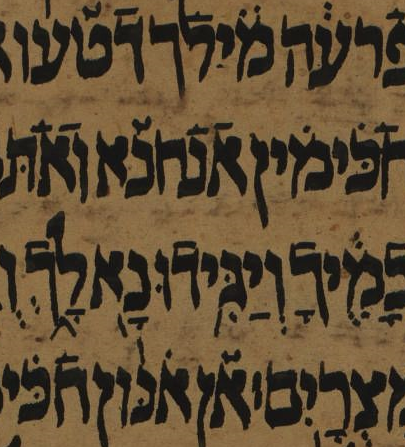 פרעה מילך דטעוא
חכימין אנחנא ואת
כָמֶיךָ וְיַגִּידוּ נָא לָךְ
מִצְרָיִם׃ אן אנון חכי